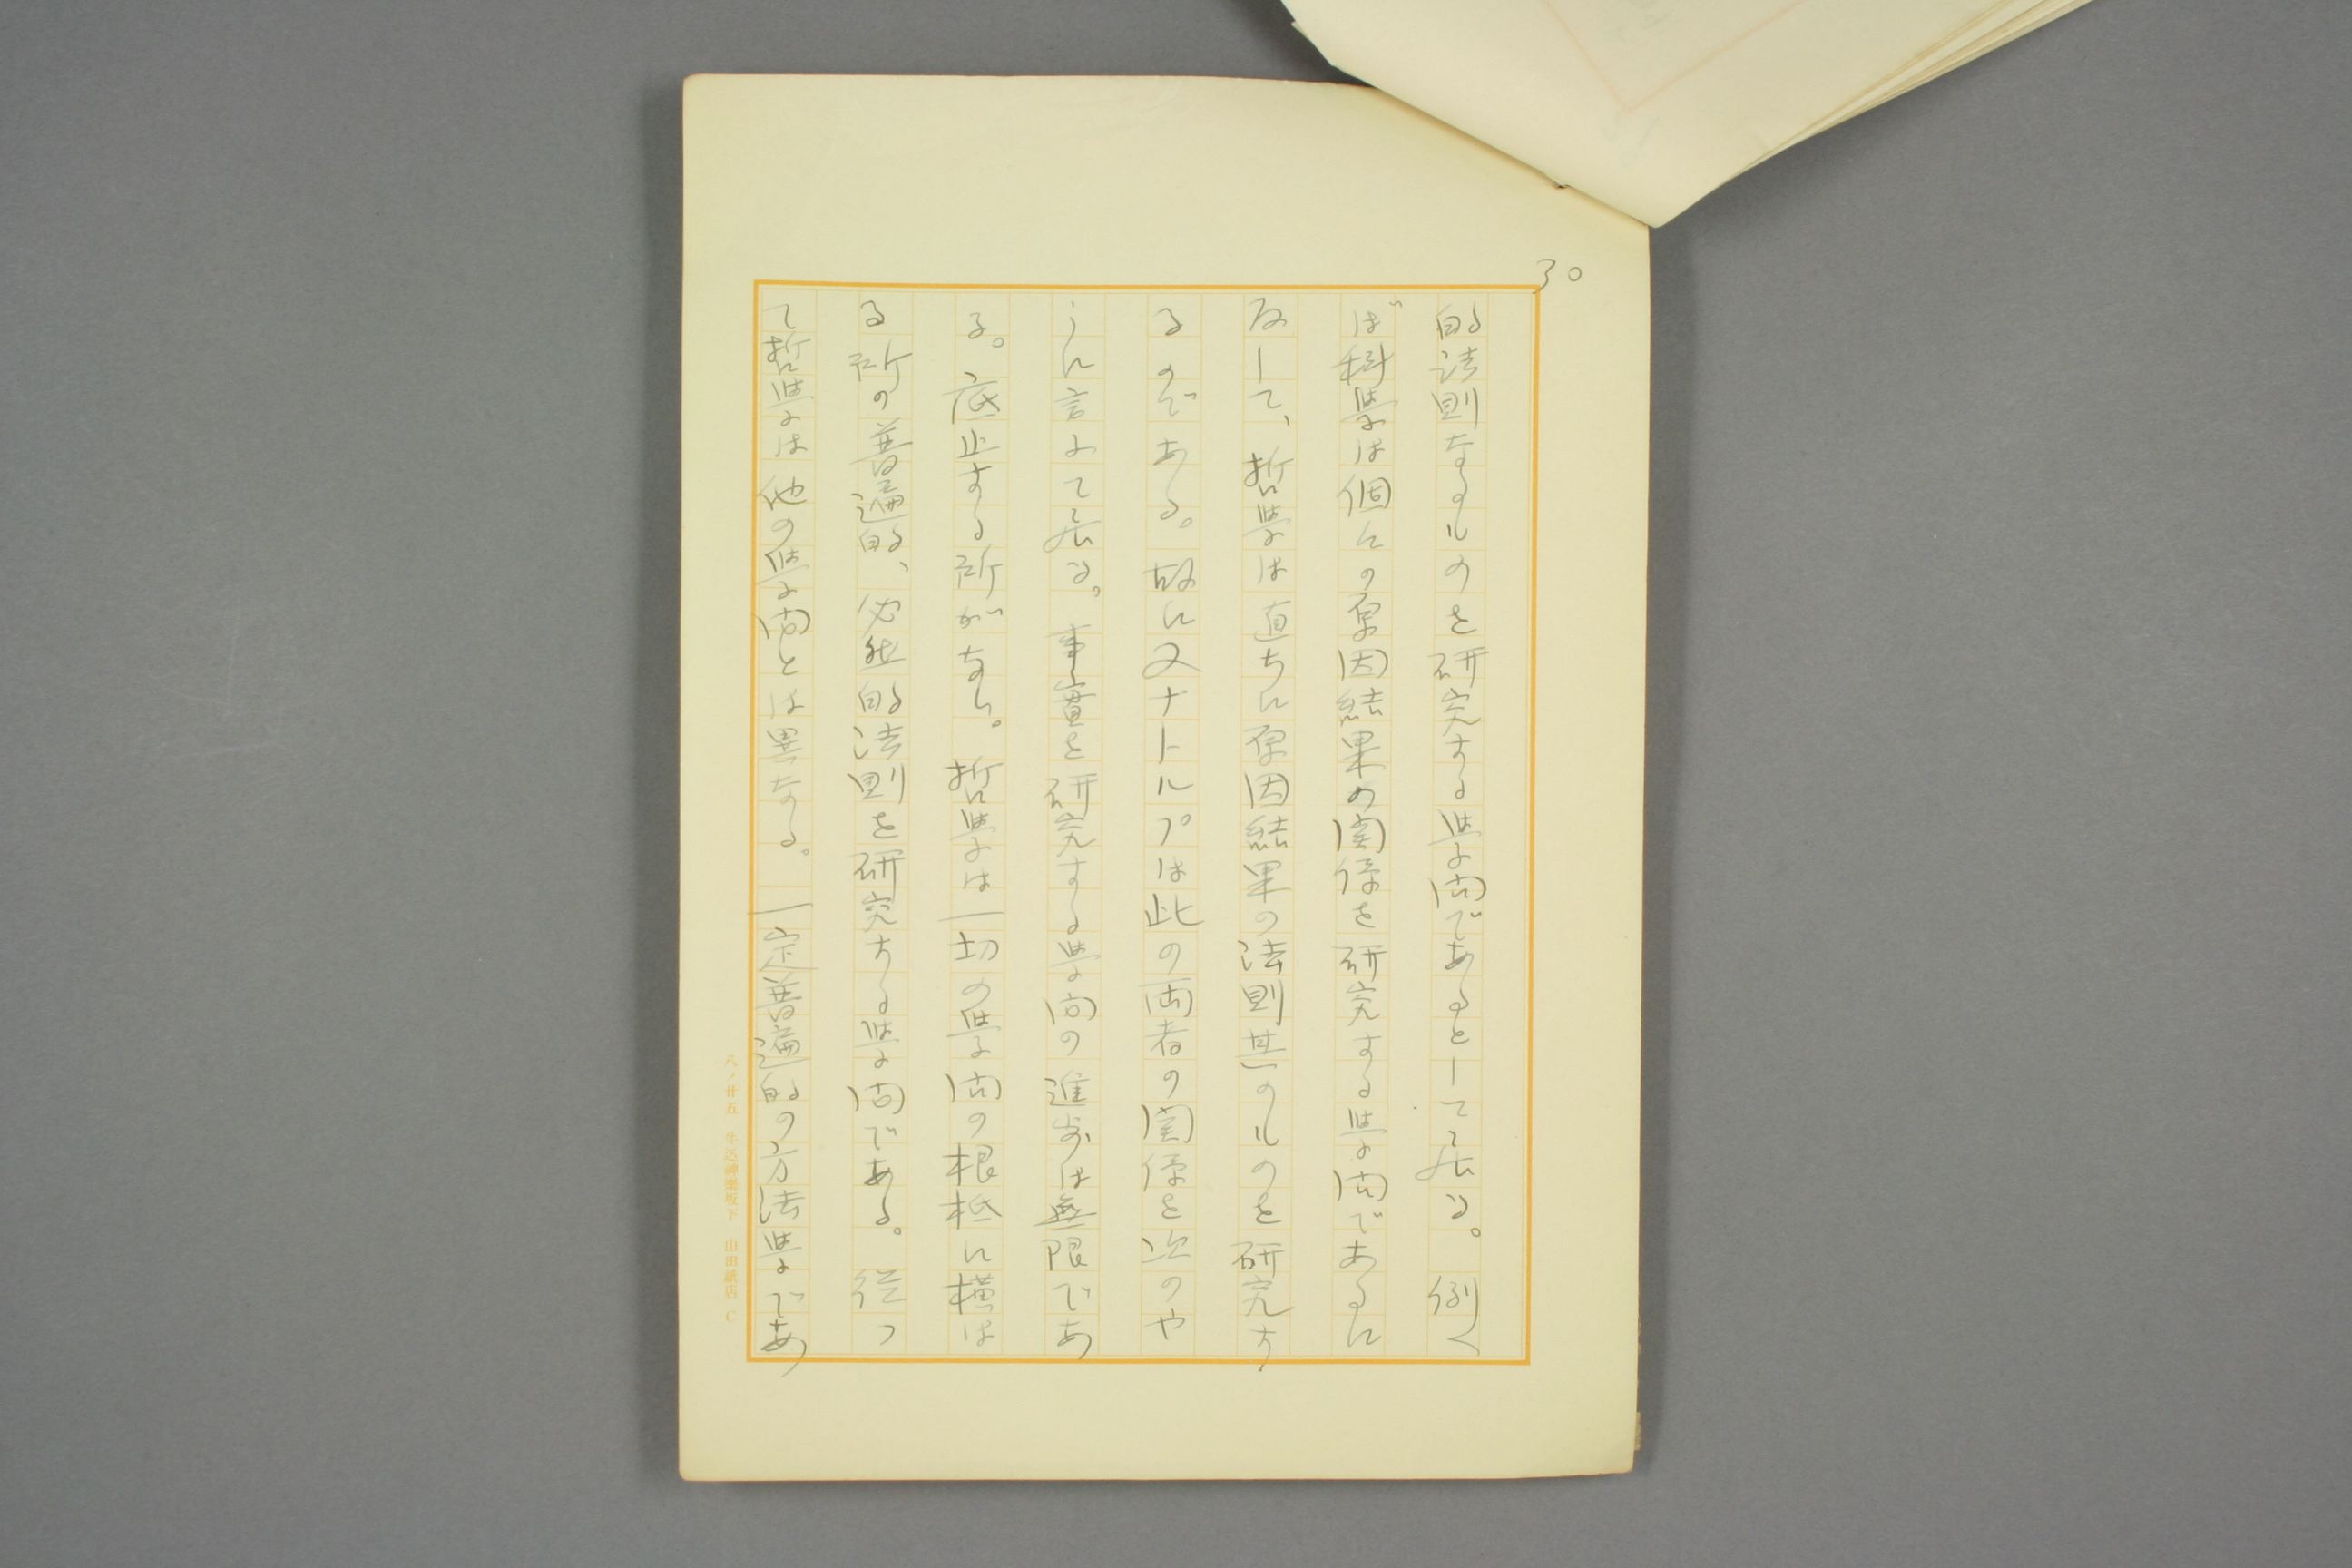 30
的法則なるものを研究する学問であるとして居る。例へ
ば科学は個々の原因結果の関係を研究する学問であるに
反して、哲学は直ちに原因結果の法則其のものを研究す
るのである。故に又ナトルプは此の両者の関係を次のや
うに言よて居る。事實を研究する学問の進歩は無限であ
る。底止する所がない。哲学は一切の学問の根柢に横は
る所の普遍的、必然的法則を研究する学問である。従つ
て哲学は他の学問とは異なる。一定普遍的の方法学であ
八ノ廿五 牛込神樂坂下 山田紙店 C